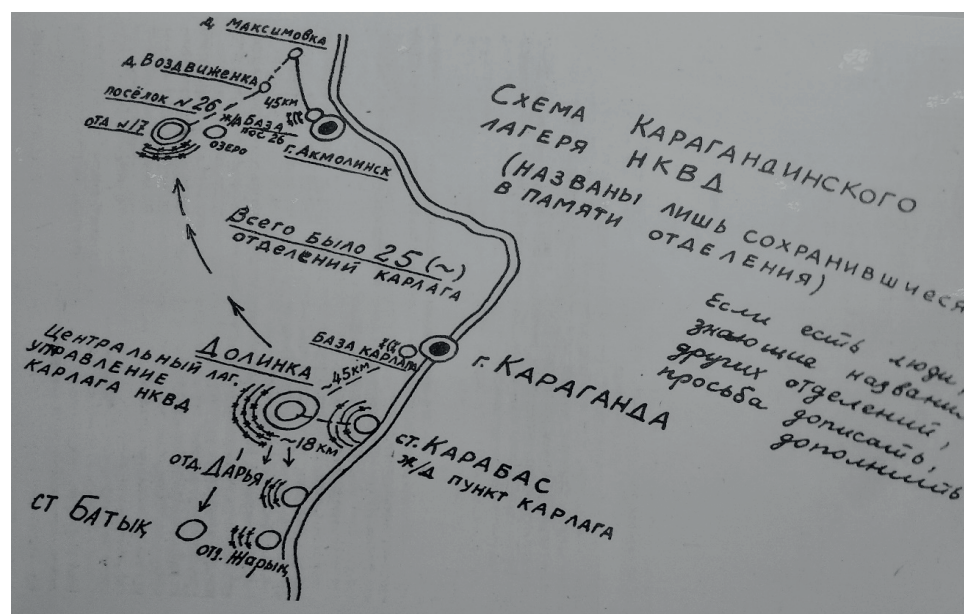 д. Максимовка
д. Воздвиженка
посёлок №26
45км
ж/д База
пос 26
отд №17
озеро
г. Акмолинск
Схема Карагандинского
лагеря НКВД
(названы лишь сохранившиеся
в памяти отделения)
Всего было 25 (~)
отделений Карлага
Если есть люди,
знающие названия
других отделений,
просьба дописать,
дополнить
База Карлага
г. Караганда
Центральный лаг.
управление
Карлага НКВД
Долинка
~45км
~18км
ст. Карабас
ж/д пункт Карлага
отд. Дарья
ст Батық
отд. Жарық